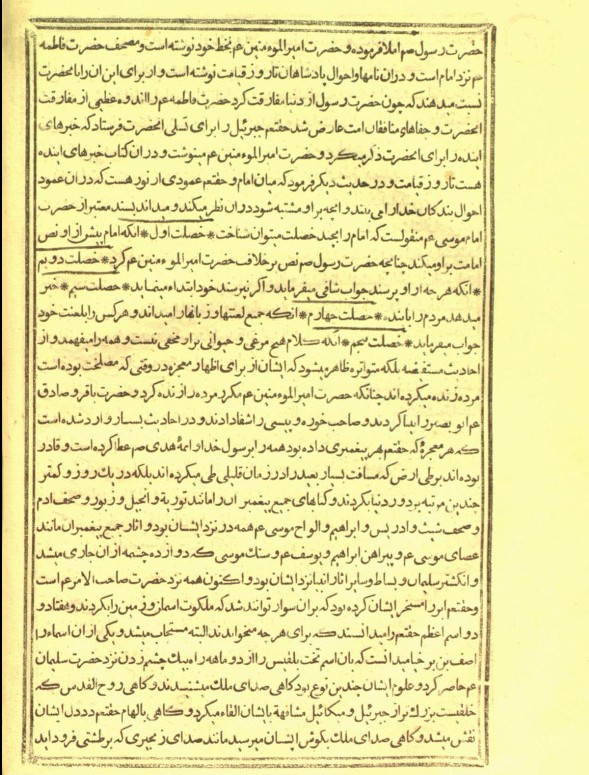 حضرت رسول صم املا فرموده و حضرت امیرالمؤمنین عم بخط خود نوشته است و مصحف حضرت فاطمه
عم نزد امام است و در ان نامها و احوال پادشاهان تا روز قیامت نوشته است و از برای این انرا بانحضرت
نسبت میدهند که چون حضرت رسول از دنیا مفارقت کرد حضرت فاطمه عم را اندوه عظیمی از مفارقت
انحضرت و جفاهای منافقان امت عارض شد حقتعم جبرئیل را برای تسلی انحضرت فرستاد که خبرهای
اینده را برای انحضرت ذکر میکرد و حضرت امیرالموء منین عم مینوشت و در ان کتاب خبرهای اینده
هست تا روز قیامت و در حدیث دیگر فرمود که میان امام و حقتعم عمودی از نور هست که در ان عمود
احوال بندکان خدا را می بیند و انچه بر او مشتبه شود در ان نظر میکند و میداند بسند معتبر از حضرت
امام موسی عم منقولست که امام را بچند خصلت میتوان شناخت * خصلت اول * انکه امام پیش از او نص
امامت بر او میکند چنانچه حضرت رسول صم نص بر خلافت حضرت امیرالموء منین عم کرد * خصلت دویم
* انکه هر چه از او پرسند جواب شافی میفرماید و اکر نپرسند خود ابتدا مینماید * خصلت سیم * خبر
میدهد مردم را باینده * خصلت چهارم * انکه جمیع لغتها و زبانها را میداند و هر کس را بلغت خود
جواب میفرماید * خصلت پنجم * انکه کلام هیچ مرغی و حیوانی بر او مخفی نیست و همه را میفهمد و از
احادیث مستفیضه بلکه متواتره ظاهر میشود که ایشان از برای اظهار معجزه در وقتی که مصلحت بوده است
مرده زنده میکرده اند چنانکه حضرت امیرالموء منین عم مکرد مرده را زنده کرد و حضرت باقر و صادق
عم ابو بصیر را بینا کردند و صاحب خوره و پیسی را شفا دادند و در احادیث بسیار وارد شده است
که هر معجزۀ که حقتعم بهر پیغمبری داده بود همه را برسول خدا و ائمۀ هدی صم عطا کرده است و قادر
بوده اند بر طی ارض که مسافت بسیار بعید را در زمان قلیلی طی میکرده اند بلکه در یك روز و کمتر
چندین مرتبه بر دور دنیا بکردند و کتابهای جمیع پیغمبران را مانند توریة و انجیل و زبور و صحف ادم
و صحف شیث و ادریس و ابراهیم و الواح موسی عم همه در نزد ایشان بود و اثار جمیع پیغمبران مانند
عصای موسی عم و پیراهن ابراهیم و یوسف عم و سنك موسی که دوازده چشمه از ان جاری میشد
و انکشتر سلیمان و بساط و سایر اثار انبیا نزد ایشان بود و اکنون همه نزد حضرت صاحب الامر عم است
و حقتعم ابر را مسخر ایشان کرده بود که بران سوار توانند شد که ملکوت اسمان و زمین را بکردند و هفتاد و
دو اسم اعظم حقتعم را میدانستند که برای هر چه میخواندند البته مستجاب میشد و یکی از ان اسماء را
اصف بن برخیا میدانست که بان اسم تخت بلقیس را از دو ماهه راه بیك چشم زدن نزد حضرت سلیمان
عم حاضر کرد و علوم ایشان چندین نوع بود کاهی صدای ملك میشنیدند و کاهی روح القدس که
خلقیست بزرك تر از جبرئیل و میکائیل مشافهة بایشان القاء میکرد و کاهی بالهام حقتعم در دل ایشان
نقش میشد و کاهی صدای ملك بکوش ایشان میرسید مانند صدای زنجیری که بر طشتی فرود اید